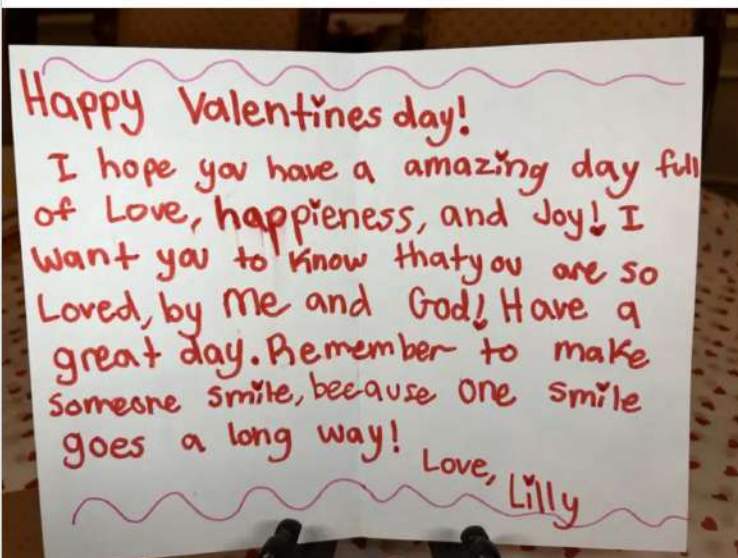 Happy Valentines day!
I hope you have a amazing day full
of Love, happieness, and Joy! I
want you to know that you are so
Loved, by me and God! Have a
great day. Remember to make
someone smile, because one smile
goes a long way!
Love,
Lilly